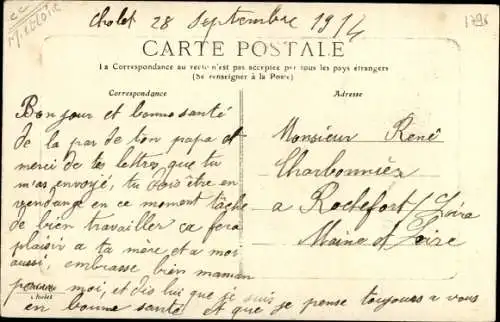 cc
Cholet 28 Septembre 1914
CARTE POSTALE
La Correspondance au recto n'est pas acceptée par tous les pays étrangers
(Se renseigner à la Poste)
Correspondance
Bonjour et bonne santé
de la par de ton papa et
merci de tes lettres que tu
mas envoyé, tu dois être en
vendange en ce moment tâche
de bien travailler ca fera
plaisir a ta mère et a moi
aussi, embrasse bien maman
pour moi, et dis lui que je suis
Cholet
en bonne santé et que je pense toujours a vous
Adresse
Monsieur René
Charbonnier
a Rochefort s/Loire
Maine et Loire